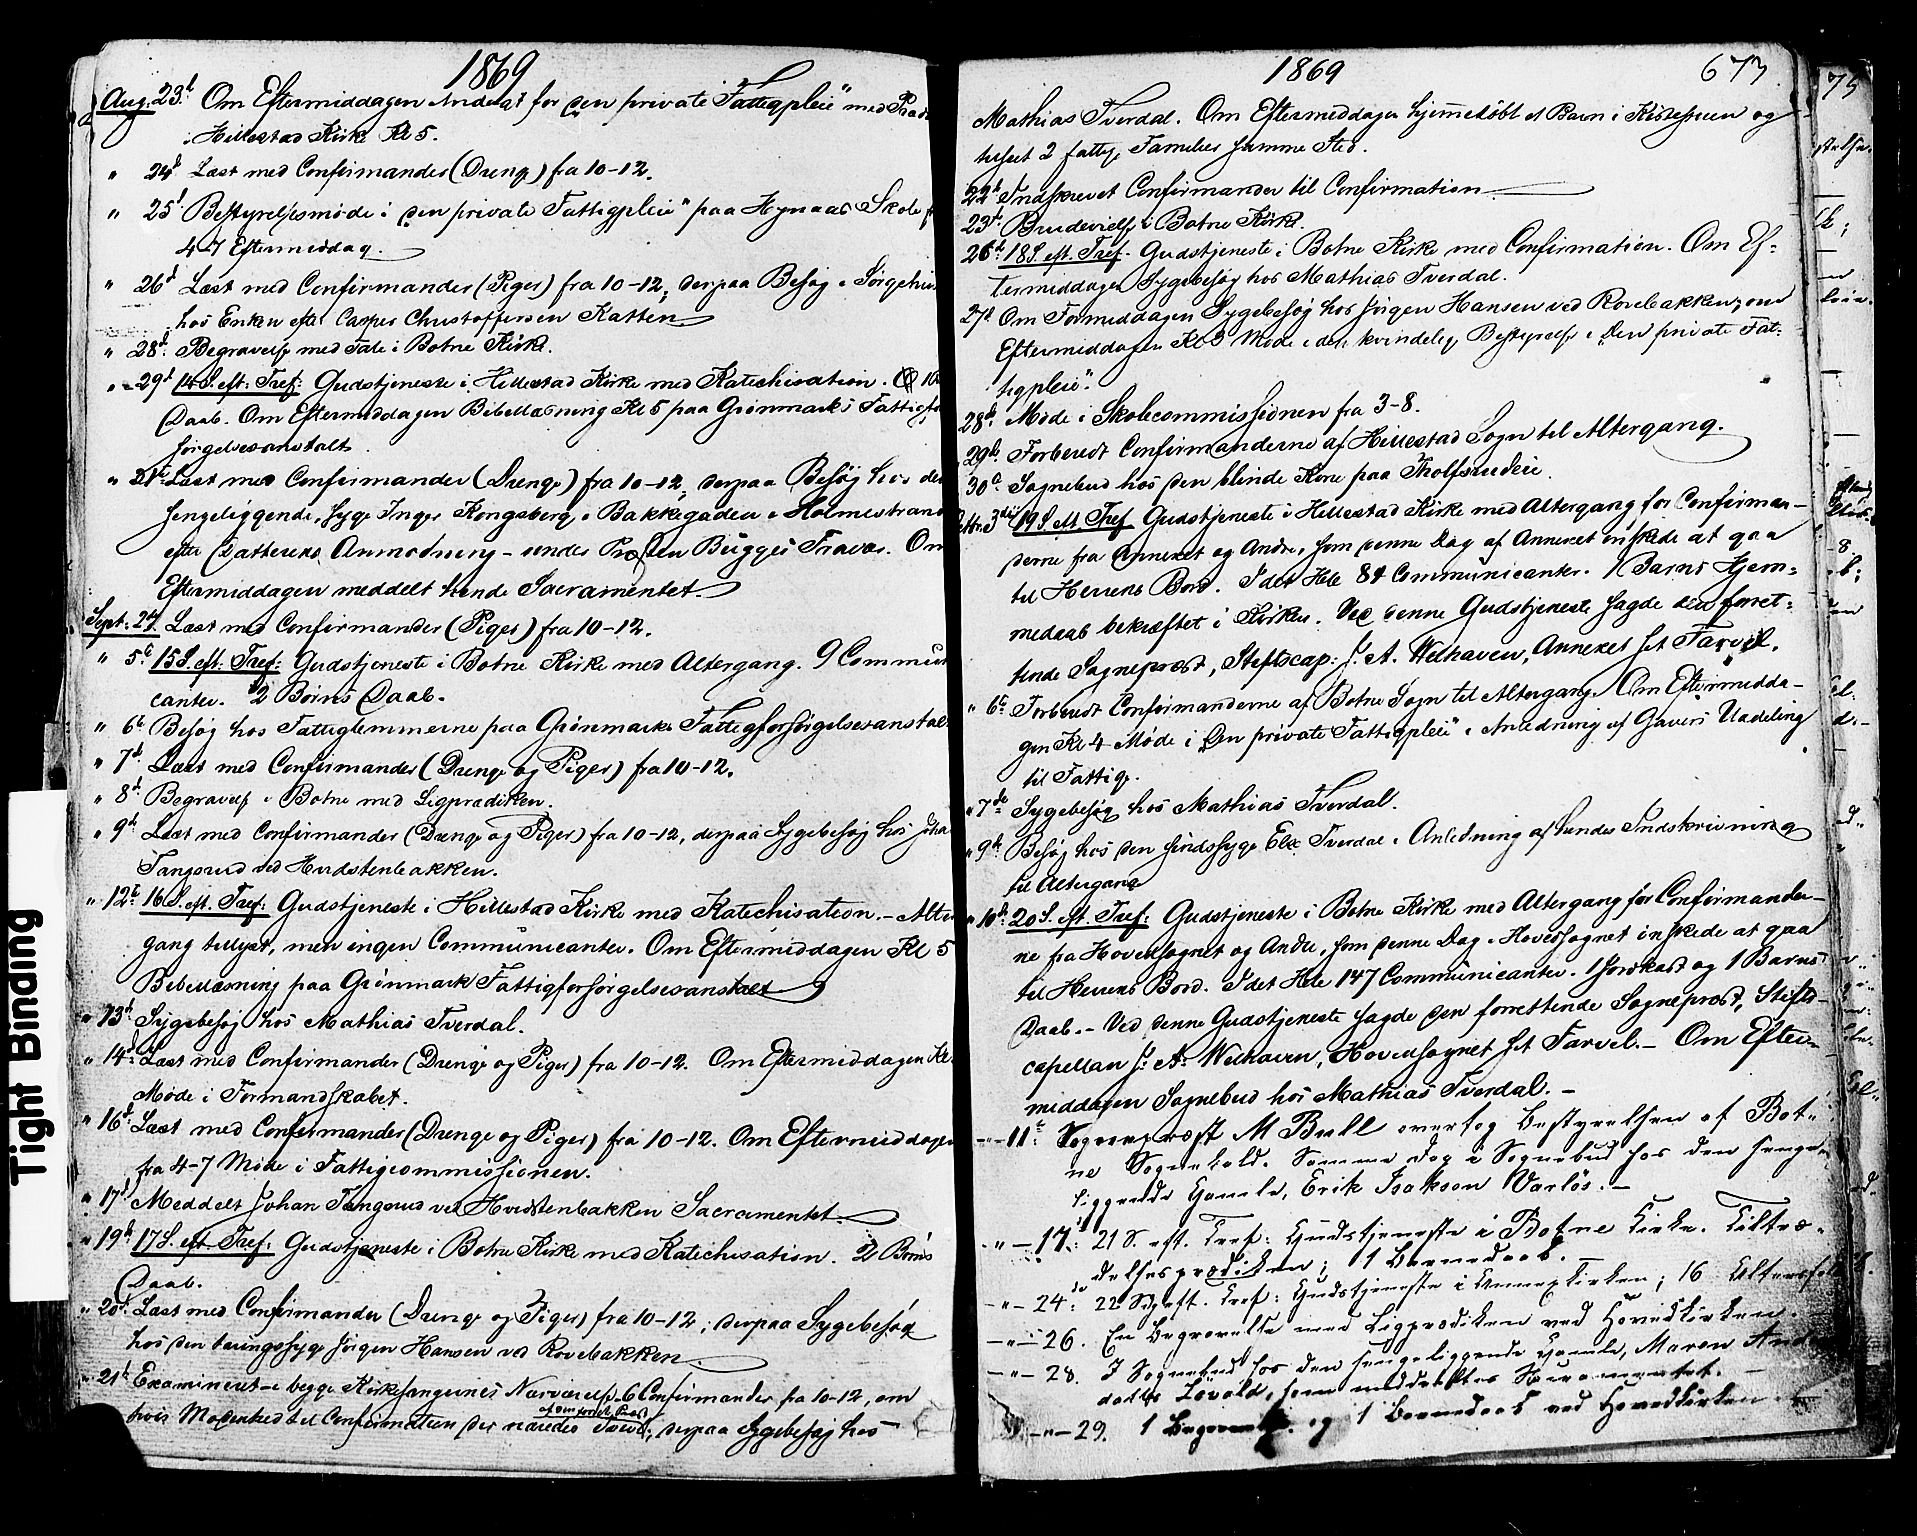 1869
Aug. 23d Om Eftermiddagen Andagt for "den private Fattigpleie" med
i Hillestad Kirke Kl 5.
" 24d Læst med Confirmander (Drenge) fra 10-12.
" 25d Bestyrelsesmøde i "den private Fattigpleie" paa Hynaas Skole
4-7 Eftermiddag.
" 26d Læst med Confirmander (Piger) fra 10-12, derpaa Besøg i
hos Enken efter Casper Christoffersen Katten.
" 28d Begravelse med Tale i Botne Kirke.
" 29d 14 S. eft. Tref: Gudstjeneste i Hillestad Kirke med Katechisation.
Daab. Om Eftermiddagen Bibellæsning Kl 5 paa Grønmarks
sørgelsesanstalt
" 31te Læst med Confirmander (Drenge) fra 10-12, derpaa Besøg hos den
sengeliggende, syge Inger Kongsberg i Bakkegaden i Holmestrand
efter Datterens Anmodning - under Præsten Bugges Fravær. Om
Eftermiddagen meddelt hende Sacramentet.
Sept: 2d. Læst med Confirmander (Piger) fra 10-12.
" 5te 15 S. eft: Tref: Gudstjeneste i Botne Kirke med Altergang. 9 Commun
canter. 2 Børns Daab.
" 6te Besøg hos Fattiglemmerne paa Grønmarks Fattigforsørgelsesanstalt
" 7d Læst med Confirmander (Drenge og Piger) fra 10-12.
" 8d Begravelse i Botne med Ligprædiken.
" 9d Læst med Confirmander (Drenge og Piger) fra 10-12, derpaa Sygebesøg hos Joha
Tangerud ved Hvidstenbakken.
" 12te 16 S. eft. Tref: Gudstjeneste i Hillestad Kirke med Katechisation. - Alter
gang tillyst, men ingen Communicanter. Om Eftermiddagen Kl 5
Bibellæsning paa Grønmark Fattigforsørgelsesanstalt
" 13d Sygebesøg hos Mathias Tverdal.
" 14d Læst med Confirmander (Drenge og Piger) fra 10-12. Om Eftermiddagen Kl.
Møde i Formandskabet.
" 16d Læst med Confirmander (Drenge og Piger) fra 10-12. Om Eftermiddagen
fra 4-7 Møde i Fattigcommissionen.
" 17d Meddelt Johan Tangerud ved Hvidstenbakken Sacramentet.
" 19d 17 S. eft Tref: Gudstjeneste i Botne Kirke med Katechisation. 2 Børns
Daab.
" 20d Læst med Confirmander (Drenge og Piger) fra 10-12; derpaa Sygebesøg
hos den tæringssyge Jörgen Hansen ved Rovebakken
" 21d Examineret i begge Kirkesangernes Nærværelse 6 Confirmander fra 10-12, om
hvis Modenhed til Confirmation der næredes Tvivl; derpaa Sygebesøg hos
1869
673
Mathias Tverdal. Om Eftermiddagen hjemmedøbt et Barn i og
tilseet 2 fattige Familier samme Sted.
22d Indskrevet Confirmander til Confirmation
23d Brudevielse i Botne Kirke.
26d 18 S. eft. Tref. Gudstjeneste i Botne Kirke med Confirmation. Om Ef-
termiddagen Sygebesøg hos Mathias Tverdal.
27d Om Formiddagen Sygebesøg hos Jörgen Hansen ved Rovebakken, om
Eftermiddagen Kl 3 Møde i den kvindelige Bestyrelse i "Den private Fat-
tigpleie".
28d Møde i Skolecommissionen fra 3-8.
29d Forberedt Confirmanderne af Hillestad Sogn til Altergang.
30d Sognebud hos den blinde Kone paa Tholfsrudeie
3die 19 S. eft Tref Gudstjeneste i Hillestad Kirke med Altergang for Confirman-
derne fra Annexet og Andre, som denne Dag af Annexet ønskede at gaa
til Herrens Bord. I det Hele 84 Communicanter. 1 Barns Hjem-
medaab bekræftet i Kirken. Ved denne Gudstjeneste sagde den forret-
tende Sognepræst, Stiftscap: J. A. Welhaven, Annexet sit Farvel.
" 6te Forberedt Confirmanderne af Botne Sogn til Altergang. Om Eftermidda-
gen Kl 4 Møde i "Den private Fattigpleie" i Anledning af Gavers Uddeling
til Fattige.
" 7de Sygebesøg hos Mathias Tverdal.
" 9de Besøg hos den sindssyge Tverdal i Anledning af hendes Indskrivning
til Altergang
" 10d 20 S. eft. Tref: Gudstjeneste i Botne Kirke med Altergang for Confirmander-
ne fra Hovedsognet og Andre, som denne Dag i Hovedsognet ønskede at gaa
til Herrens Bord. I det Hele 147 Communicanter. 1 og 1 Barns
Daab. - Ved denne Gudstjeneste sagde den forrettende Sognepræst, Stifts-
capellan J. A. Welhaven, Hovedsognet sit Farvel. - Om Efter-
middagen Sognebud hos Mathias Tverdal. -
-"- 11te Sognepræst M Bull overtog Bestyrelsen af Bot-
ne Sognekald. Samme Dag i Sognebud hos den senge-
liggende Gamle, Erik Isaksen Varlös. -
-"- 17: 21 S. eft. Tref: Gudstjeneste i Botne Kirke. Tiltræ-
delsesprædiken; 1 Barnedaab. -
-"- 24: 22 S. eft. Tref: Gudstjeneste i Annexkirken; 16
-"- 26. En Begravelse med Ligprædiken ved Hovedkirken.
-"- 28. I Sognebud hos den sengeliggende Gamle, Maren
datter Lövald, som meddeltes Sacramentet.
-"- 29. 1 Begravelse og 1 Barnedaab ved Hovedkirken.
Tight Binding